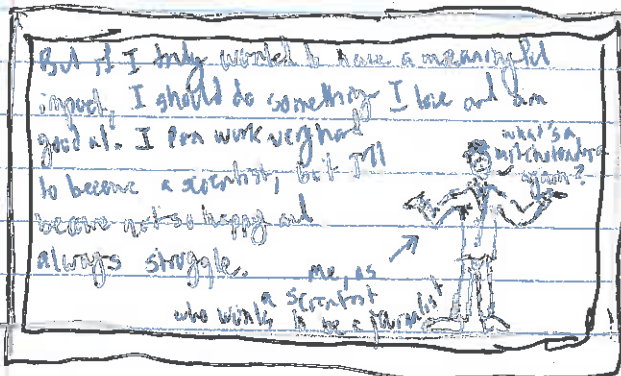 But if I truly wanted to have a meaningful
impact, I should do something I love and am
good at. I can work very hard
to become a scientist, but I'll
become not so happy and
always struggle.
what's a
mitochondria
again?
me, as
a scientist
who wants to be a journalist